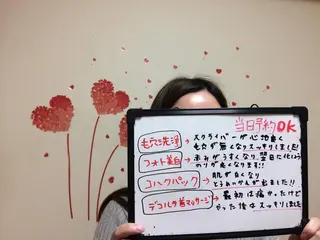 当日予約OK
毛穴洗浄
スクライバーが心地良く
毛穴が無くなりスッキリしました!
フォト美白
赤みがうすくなり翌日に化しょう
のりが良くなります!!
コハクパック
肌が白くなり
とうめいかんが出ました!!
デコルテ着マッサージ
最初は痛かったけど
やった後はスッキリしました